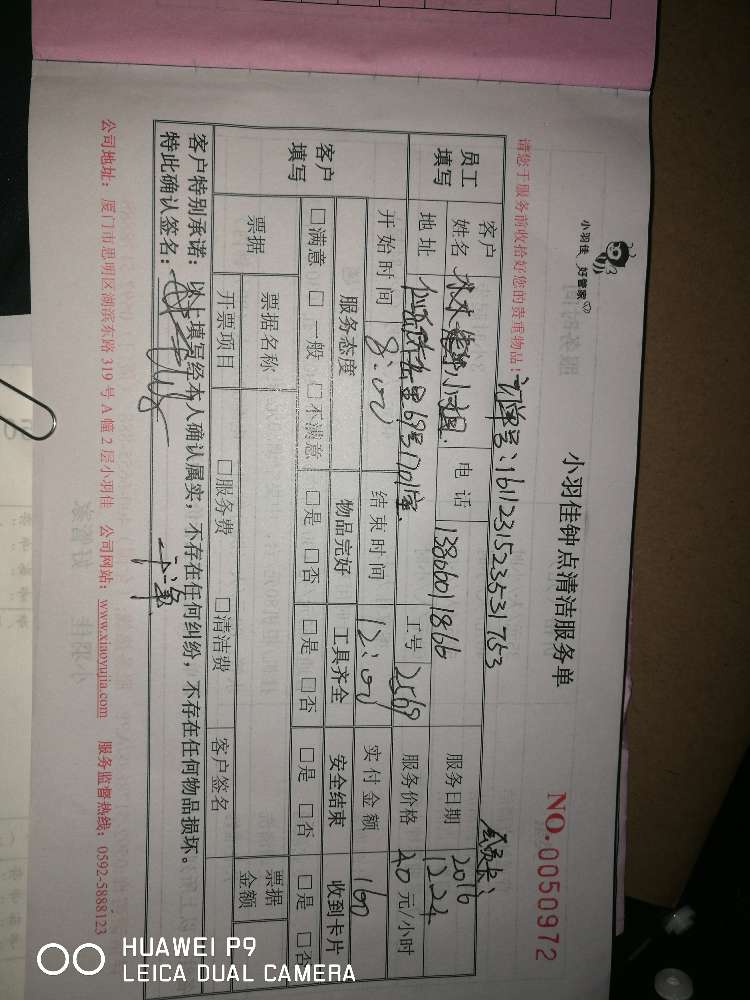 小羽佳 好管家
小羽佳钟点清洁服务单
NO.0050972
请您于服务前收拾好您的贵重物品!
订单号:1612231523531753
会员卡:
员工填写
客户姓名 小姐 电话 13806011866 服务日期 2016 12.24
地址 69号1701室. 工号 2569 服务价格 40 元/小时
开始时间 8:00 结束时间 12:00 实付金额 160
客户填写
服务态度 物品完好 工具齐全 安全结束 收到卡片
□满意 □一般 □不满意 □是 □否 □是 □否 □是 □否 □是 □否
票据 票据名称 票据金额
开票项目 □服务费 □清洁费 客户签名
客户特别承诺:以上填写经本人确认属实,不存在任何纠纷,不存在任何物品损坏。
特此确认签名:
公司地址:厦门市思明区湖滨东路 319 号 A 幢 2 层小羽佳 公司网站:www.xiaoyujia.com 服务监督热线:0592-5888123
HUAWEI P9
LEICA DUAL CAMERA